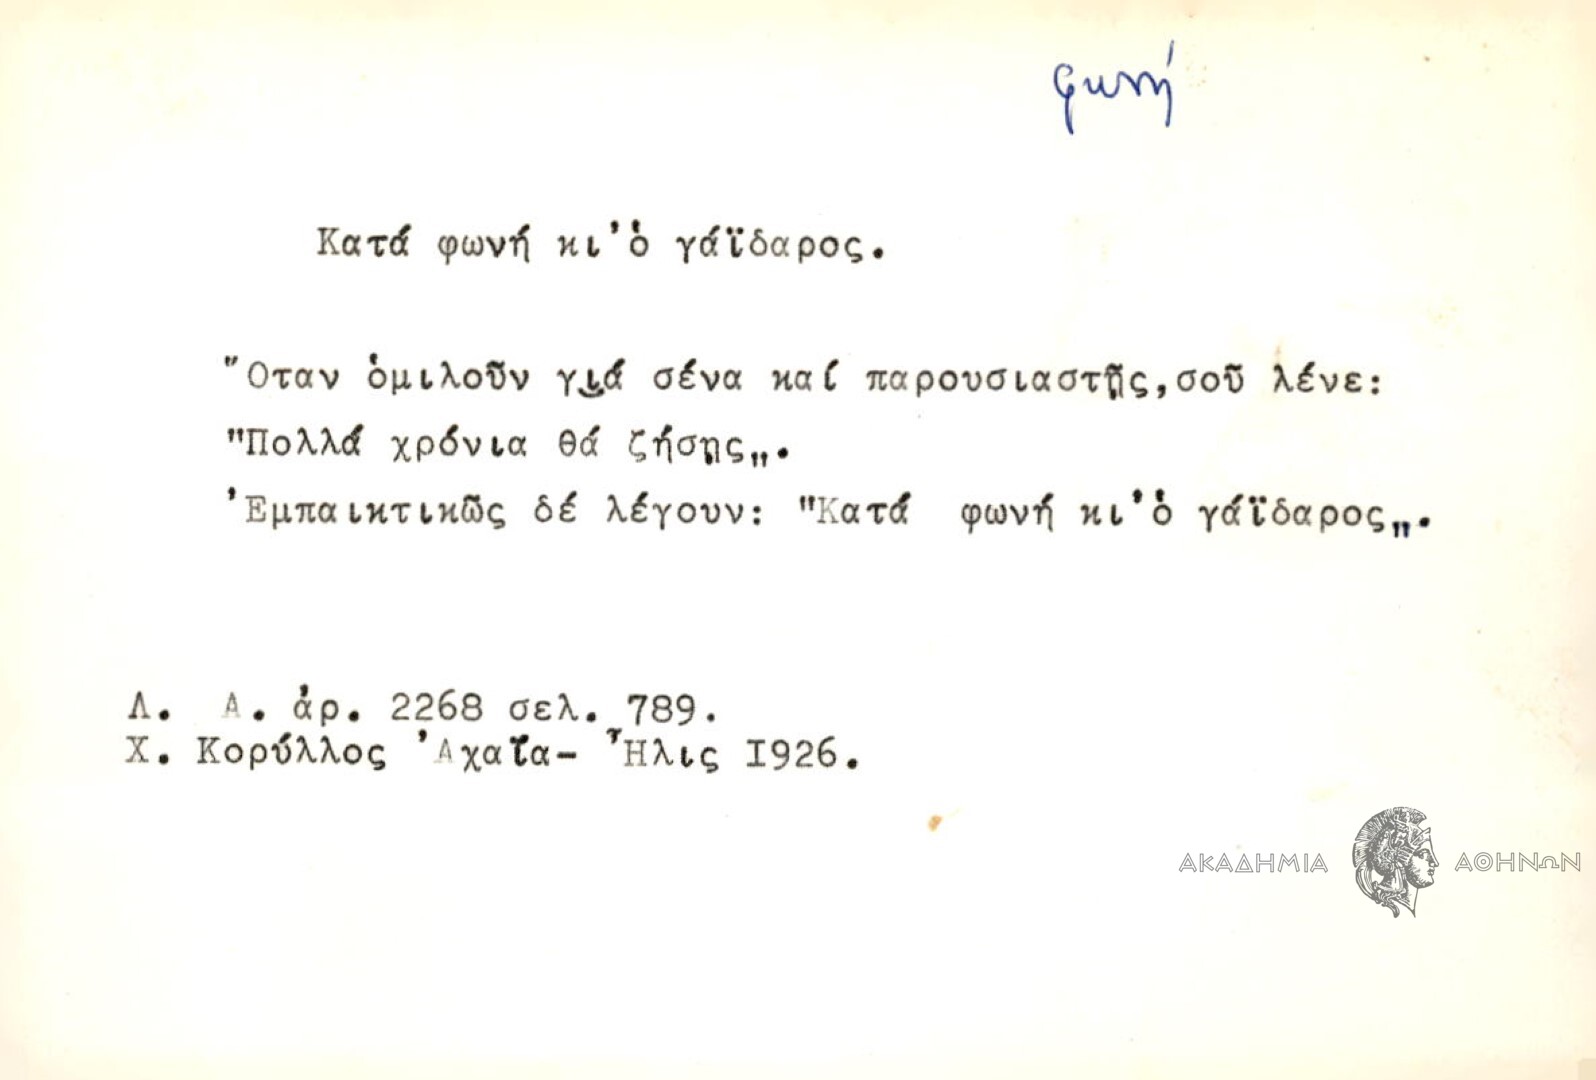 φωνή
Κατά φωνή κι'ὁ γάϊδαρος.
Ὅταν ὁμιλοῦν γιά σένα καί παρουσιαστῇς,σοῦ λένε:
"Πολλά χρόνια θά ζήσῃς„.
Ἐμπαικτικῶς δέ λέγουν: "Κατά φωνή κι'ὁ γάϊδαρος„.
Λ. Α. ἀρ. 2268 σελ. 789.
Χ. Κορύλλος Ἀχαΐα- Ἦλις 1926.
ΑΚΑΔΗΜΙΑ ΑΘΗΝΩΝ